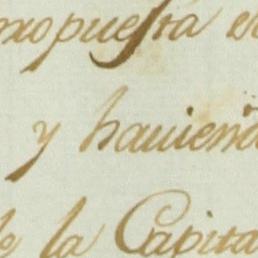 propuesta e
y haviend
de la Capita